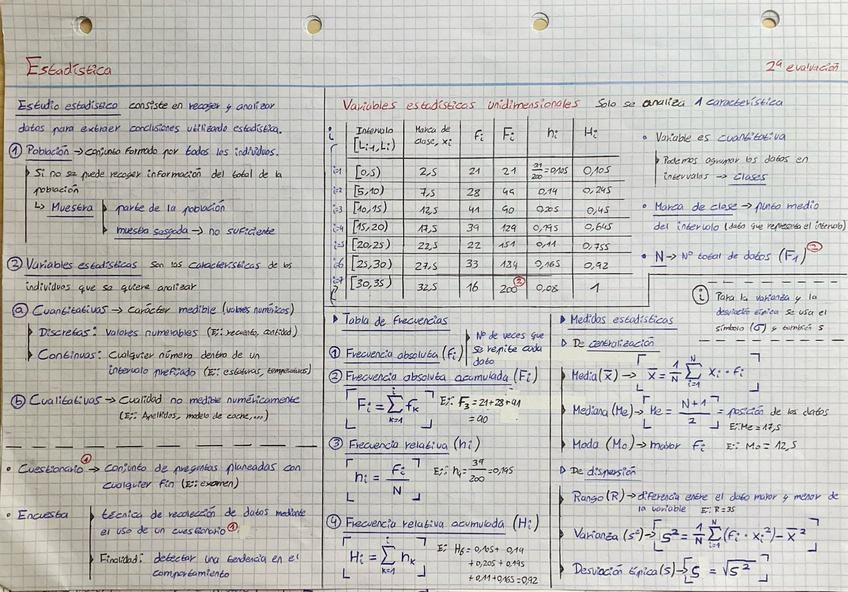 Estadística
2ª evaluación
Estudio estadístico consiste en recoger y analizar
datos para extraer conclusiones utilizando estadística.
① Población → conjunto formado por todos los individuos.
Si no se puede recoger información del total de la
población
↳ Muestra
parte de la población
muestra sesgada → no suficiente
② Variables estadísticas Son las características de los
individuos que se quiere analizar
ⓐ Cuantitativas → Carácter medible (valores numéricos)
Discretas: valores numerables (Ej: recuento, cantidad)
Continuas: Cualquier número dentro de un
intervalo prefijado (Ej: estaturas, temperaturas)
ⓑ Cualitativas → Cualidad no medible numéricamente
(Ej: Apellidos, modelo de coche,...)
• Cuestionario ① → conjunto de preguntas planeadas con
cualquier fin (Ej: examen)
• Encuesta
técnica de recolección de datos mediante
el uso de un cuestionario ①
Finalidad: detectar una tendencia en el
comportamiento
Variables estadísticas unidimensionales Solo se analiza 1 característica
i Intervalo [Li-1, Li) Marca de clase, xi fi Fi hi Hi
i=1 [0,5) 2,5 21 21 21/200 = 0,105 0,105
i=2 [5,10) 7,5 28 49 0,14 0,245
i=3 [10,15) 12,5 41 90 0,205 0,45
i=4 [15,20) 17,5 39 129 0,195 0,645
i=5 [20,25) 22,5 22 151 0,11 0,755
i=6 [25,30) 27,5 33 184 0,165 0,92
i=7 [30,35) 32,5 16 200 ② 0,08 1
• Variable es cuantitativa
Podemos agrupar los datos en
intervalos → clases
• Marca de clase → punto medio
del intervalo (dato que representa el intervalo)
• N → Nº total de datos (F1) ②
i Para la varianza y la
desviación típica se usa el
símbolo (σ) y también s
Tabla de Frecuencias
① Frecuencia absoluta (fi)
Nº de veces que
se repite cada
dato
② Frecuencia absoluta acumulada (Fi)
Fi = Σ(k=1, i) fk
Ej: F3 = 21+28+41
= 90
③ Frecuencia relativa (hi)
hi = Fi / N
Ej: h4 = 39/200 = 0,195
④ Frecuencia relativa acumulada (Hi)
Hi = Σ(k=1, i) hk
Ej: H6 = 0,105 + 0,14
+ 0,205 + 0,195
+ 0,11 + 0,165 = 0,92
Medidas estadísticas
De centralización
Media (x̄) → x̄ = 1/N Σ(i=1, N) xi · fi
Mediana (Me) → Me = (N+1)/2 = posición de los datos
Ej: Me = 17,5
Moda (Mo) → mayor fi Ej: Mo = 12,5
De dispersión
Rango (R) → diferencia entre el dato mayor y menor de
la variable Ej: R = 35
Varianza (s²) → s² = 1/N Σ(i=1, N) (fi · xi²) - x̄²
Desviación típica (s) → s = √s²